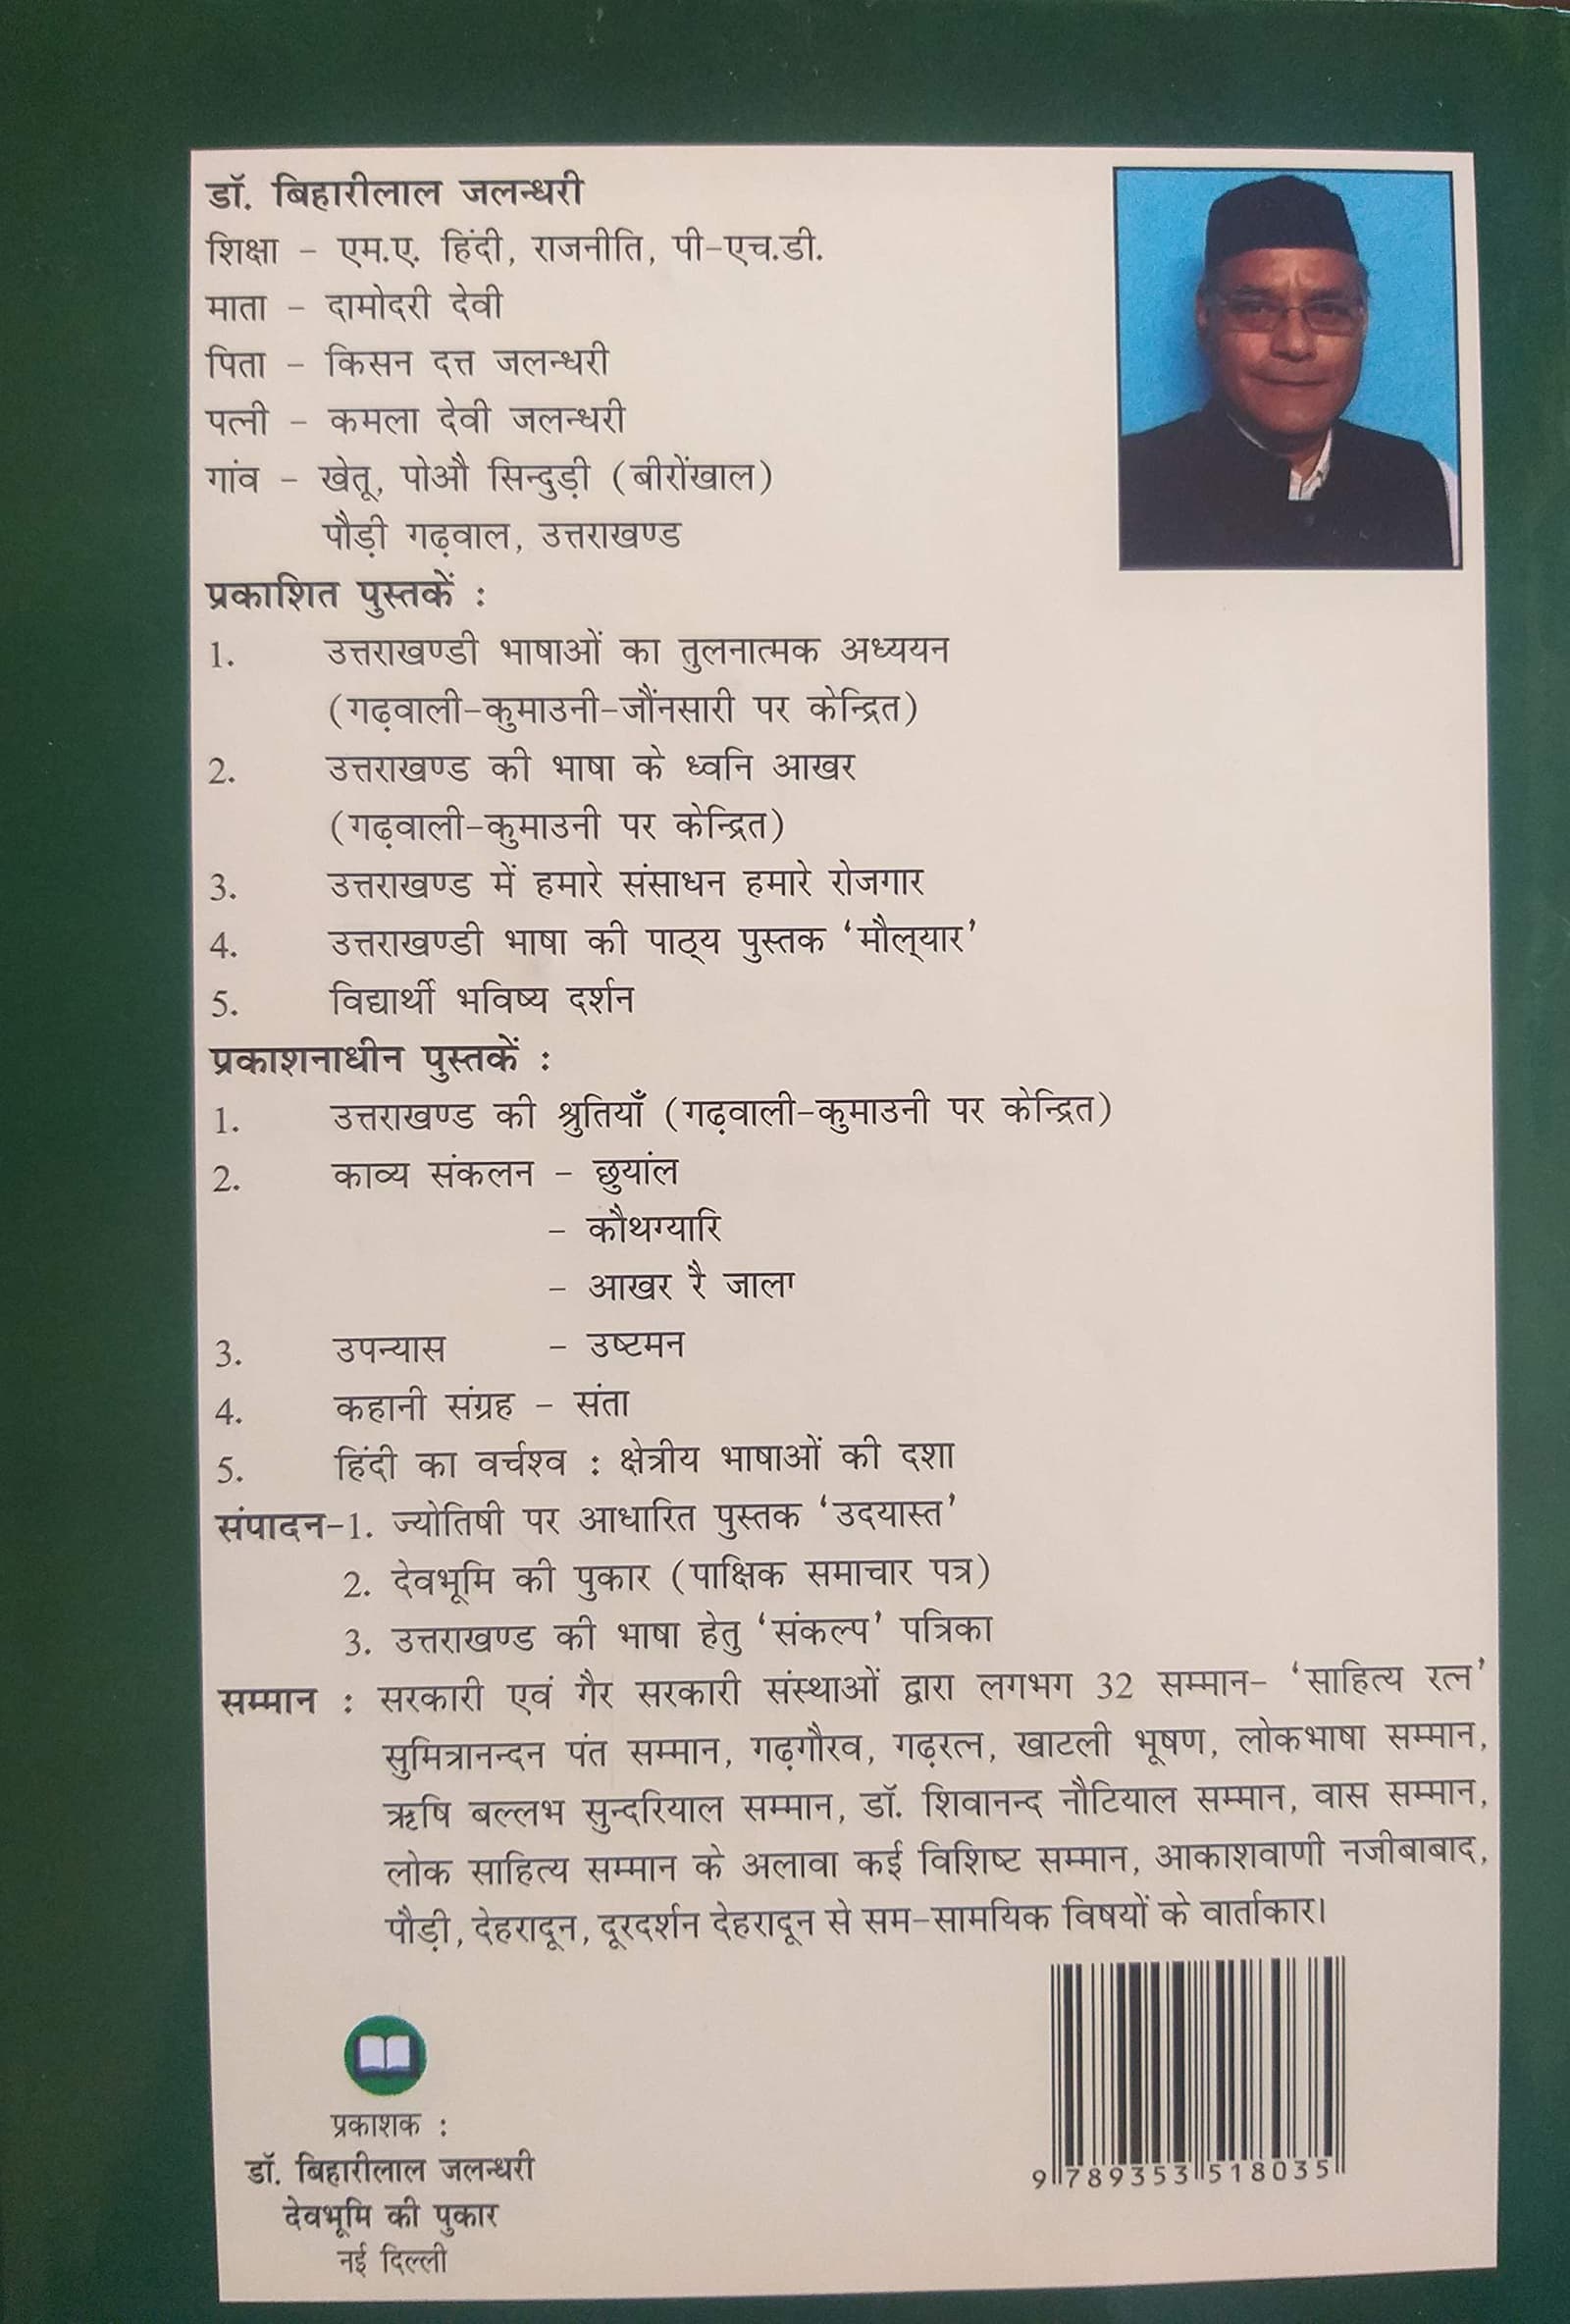 डॉ. बिहारीलाल जलन्धरी
शिक्षा - एम.ए. हिंदी, राजनीति, पी-एच.डी.
माता - दामोदरी देवी
पिता - किसन दत्त जलन्धरी
पत्नी - कमला देवी जलन्धरी
गांव - खेतू, पोऔ सिन्दुड़ी (बीरोंखाल)
पौड़ी गढ़वाल, उत्तराखण्ड
प्रकाशित पुस्तकें :
1. उत्तराखण्डी भाषाओं का तुलनात्मक अध्ययन
(गढ़वाली-कुमाउनी-जौंनसारी पर केन्द्रित)
2. उत्तराखण्ड की भाषा के ध्वनि आखर
(गढ़वाली-कुमाउनी पर केन्द्रित)
3. उत्तराखण्ड में हमारे संसाधन हमारे रोजगार
4. उत्तराखण्डी भाषा की पाठ्य पुस्तक ‘मौल्यार’
5. विद्यार्थी भविष्य दर्शन
प्रकाशनाधीन पुस्तकें :
1. उत्तराखण्ड की श्रुतियाँ (गढ़वाली-कुमाउनी पर केन्द्रित)
2. काव्य संकलन - छुयांल
- कौथग्यारि
- आखर रै जाला
3. उपन्यास - उष्टमन
4. कहानी संग्रह - संता
5. हिंदी का वर्चश्व : क्षेत्रीय भाषाओं की दशा
संपादन-1. ज्योतिषी पर आधारित पुस्तक ‘उदयास्त’
2. देवभूमि की पुकार (पाक्षिक समाचार पत्र)
3. उत्तराखण्ड की भाषा हेतु ‘संकल्प’ पत्रिका
सम्मान : सरकारी एवं गैर सरकारी संस्थाओं द्वारा लगभग 32 सम्मान- ‘साहित्य रत्न’
सुमित्रानन्दन पंत सम्मान, गढ़गौरव, गढ़रत्न, खाटली भूषण, लोकभाषा सम्मान,
ऋषि बल्लभ सुन्दरियाल सम्मान, डॉ. शिवानन्द नौटियाल सम्मान, वास सम्मान,
लोक साहित्य सम्मान के अलावा कई विशिष्ट सम्मान, आकाशवाणी नजीबाबाद,
पौड़ी, देहरादून, दूरदर्शन देहरादून से सम-सामयिक विषयों के वार्ताकार।
प्रकाशक :
डॉ. बिहारीलाल जलन्धरी
देवभूमि की पुकार
नई दिल्ली
9 789353 518035